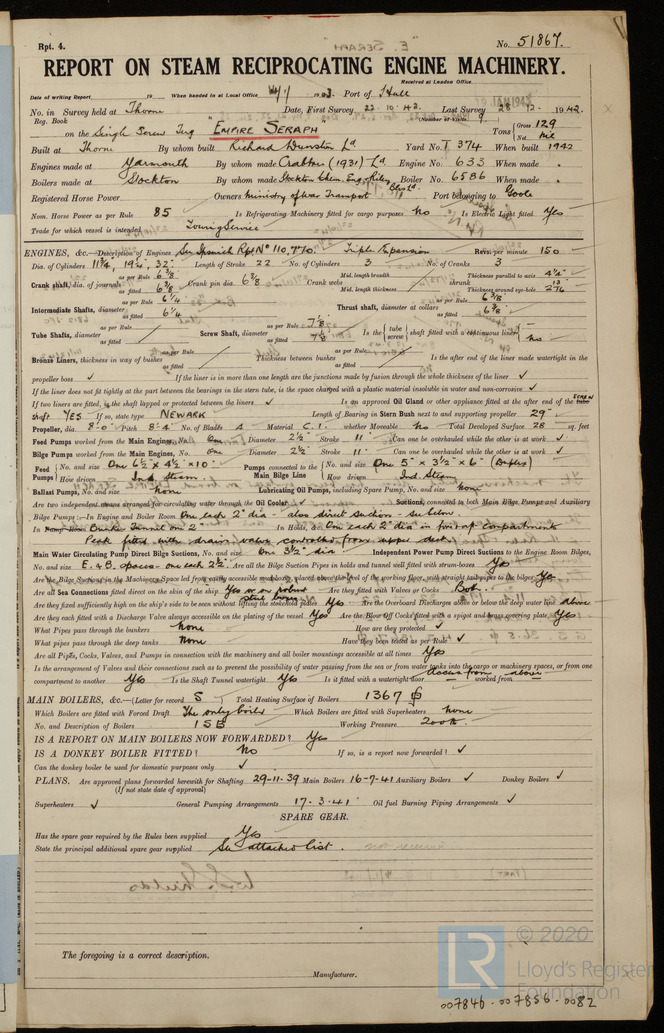 Rpt. 4.
No. 51867.
REPORT ON STEAM RECIPROCATING ENGINE MACHINERY.
Received at London Office
Date of writing Report 19 When handed in at Local Office 19 Port of Hull
No. in Survey held at Thorne Date, First Survey 22.10.42. Last Survey 28.12.1942.
Reg. Book (Number of Visits 9
on the Single Screw Tug "EMPIRE SERAPH" Tons Gross 129 Net Nil
Built at Thorne By whom built Richard Dunston Ld Yard No. T 374 When built 1942
Engines made at Yarmouth By whom made Crabtree (1931) Ld Engine No. 633 When made
Boilers made at Stockton By whom made Stockton Chem. Engs & Riley Boiler No. 6586 When made
Registered Horse Power Owners Ministry of War Transport Port belonging to Goole
Nom. Horse Power as per Rule 85 Is Refrigerating Machinery fitted for cargo purposes No Is Electric Light fitted Yes
Trade for which vessel is intended Towing Service
ENGINES, &c.—Description of Engines See Ipswich Rpt No 110,770 Triple Expansion Revs. per minute 150
Dia. of Cylinders 11¾, 19¼, 32 Length of Stroke 22 No. of Cylinders 3 No. of Cranks 3
Crank shaft, dia. of journals as per Rule 6 3/8 as fitted 6 3/8 Crank pin dia. 6 3/8 Crank webs Mid. length breadth Mid. length thickness shrunk Thickness parallel to axis 4¼ Thickness around eye-hole 2 13/16
Intermediate Shafts, diameter as per Rule 6¼ as fitted 6¼ Thrust shaft, diameter at collars as per Rule 6 3/8 as fitted 6 3/8
Tube Shafts, diameter as per Rule as fitted Screw Shaft, diameter as per Rule 7 1/8 as fitted 7 1/8 Is the tube screw shaft fitted with a continuous liner No
Bronze Liners, thickness in way of bushes as per Rule as fitted Thickness between bushes as per Rule as fitted Is the after end of the liner made watertight in the
propeller boss ✓ If the liner is in more than one length are the junctions made by fusion through the whole thickness of the liner ✓
If the liner does not fit tightly at the part between the bearings in the stern tube, is the space charged with a plastic material insoluble in water and non-corrosive ✓
If two liners are fitted, is the shaft lapped or protected between the liners ✓ Is an approved Oil Gland or other appliance fitted at the after end of the tube SCREW
shaft YES If so, state type NEWARK Length of Bearing in Stern Bush next to and supporting propeller 29"
Propeller, dia. 8'-0" Pitch 8'-4" No. of Blades 4 Material C.I. whether Moveable No Total Developed Surface 28 sq. feet
Feed Pumps worked from the Main Engines, No. One Diameter 2½" Stroke 11" Can one be overhauled while the other is at work ✓
Bilge Pumps worked from the Main Engines, No. One Diameter 2½" Stroke 11" Can one be overhauled while the other is at work ✓
Feed Pumps No. and size One 6½" x 4½" x 10" How driven Ind. Steam. Pumps connected to the Main Bilge Line No. and size One 5" x 3½" x 6" (Duplex) How driven Ind. Steam
Ballast Pumps, No. and size None Lubricating Oil Pumps, including Spare Pump, No. and size None
Are two independent means arranged for circulating water through the Oil Cooler ✓ Suctions, connected to both Main Bilge Pumps and Auxiliary
Bilge Pumps :—In Engine and Boiler Room One each 2" dia - also direct suction - see below.
In Pump Room Bunker Tunnel one 2" In Holds, &c. One each 2" dia in fore & up compartments
Peak fitted with drain valve controlled from upper deck.
Main Water Circulating Pump Direct Bilge Suctions, No. and size One 3½" dia. Independent Power Pump Direct Suctions to the Engine Room Bilges,
No. and size E & B. spaces - one each 2½". Are all the Bilge Suction Pipes in holds and tunnel well fitted with strum-boxes Yes
Are the Bilge Suctions in the Machinery Space led from easily accessible mud-boxes, placed above the level of the working floor, with straight tail pipes to the bilges Yes
Are all Sea Connections fitted direct on the skin of the ship Yes or on robust steel boxes Are they fitted with Valves or Cocks Both.
Are they fixed sufficiently high on the ship's side to be seen without lifting the stokehold plates Yes Are the Overboard Discharges above or below the deep water line above
Are they each fitted with a Discharge Valve always accessible on the plating of the vessel Yes Are the Blow Off Cocks fitted with a spigot and brass covering plate Yes
What Pipes pass through the bunkers None How are they protected ✓
What pipes pass through the deep tanks None Have they been tested as per Rule ✓
Are all Pipes, Cocks, Valves, and Pumps in connection with the machinery and all boiler mountings accessible at all times Yes
Is the arrangement of Valves and their connections such as to prevent the possibility of water passing from the sea or from water tanks into the cargo or machinery spaces, or from one
compartment to another Yes Is the Shaft Tunnel watertight Yes Is it fitted with a watertight door access from above worked from
MAIN BOILERS, &c.—(Letter for record S) Total Heating Surface of Boilers 1367
Which Boilers are fitted with Forced Draft The only boiler Which Boilers are fitted with Superheaters None
No. and Description of Boilers 1 SB Working Pressure 200 lb.
IS A REPORT ON MAIN BOILERS NOW FORWARDED? Yes
IS A DONKEY BOILER FITTED? No If so, is a report now forwarded? ✓
Can the donkey boiler be used for domestic purposes only ✓
PLANS. Are approved plans forwarded herewith for Shafting 29-11-39 Main Boilers 16-7-41 Auxiliary Boilers ✓ Donkey Boilers ✓
(If not state date of approval)
Superheaters ✓ General Pumping Arrangements 17.3.41 Oil fuel Burning Piping Arrangements ✓
SPARE GEAR.
Has the spare gear required by the Rules been supplied Yes
State the principal additional spare gear supplied See attached list. not received
The foregoing is a correct description.
Manufacturer.
© 2020
LR
Lloyd's Register
Foundation
007846-007856-0082